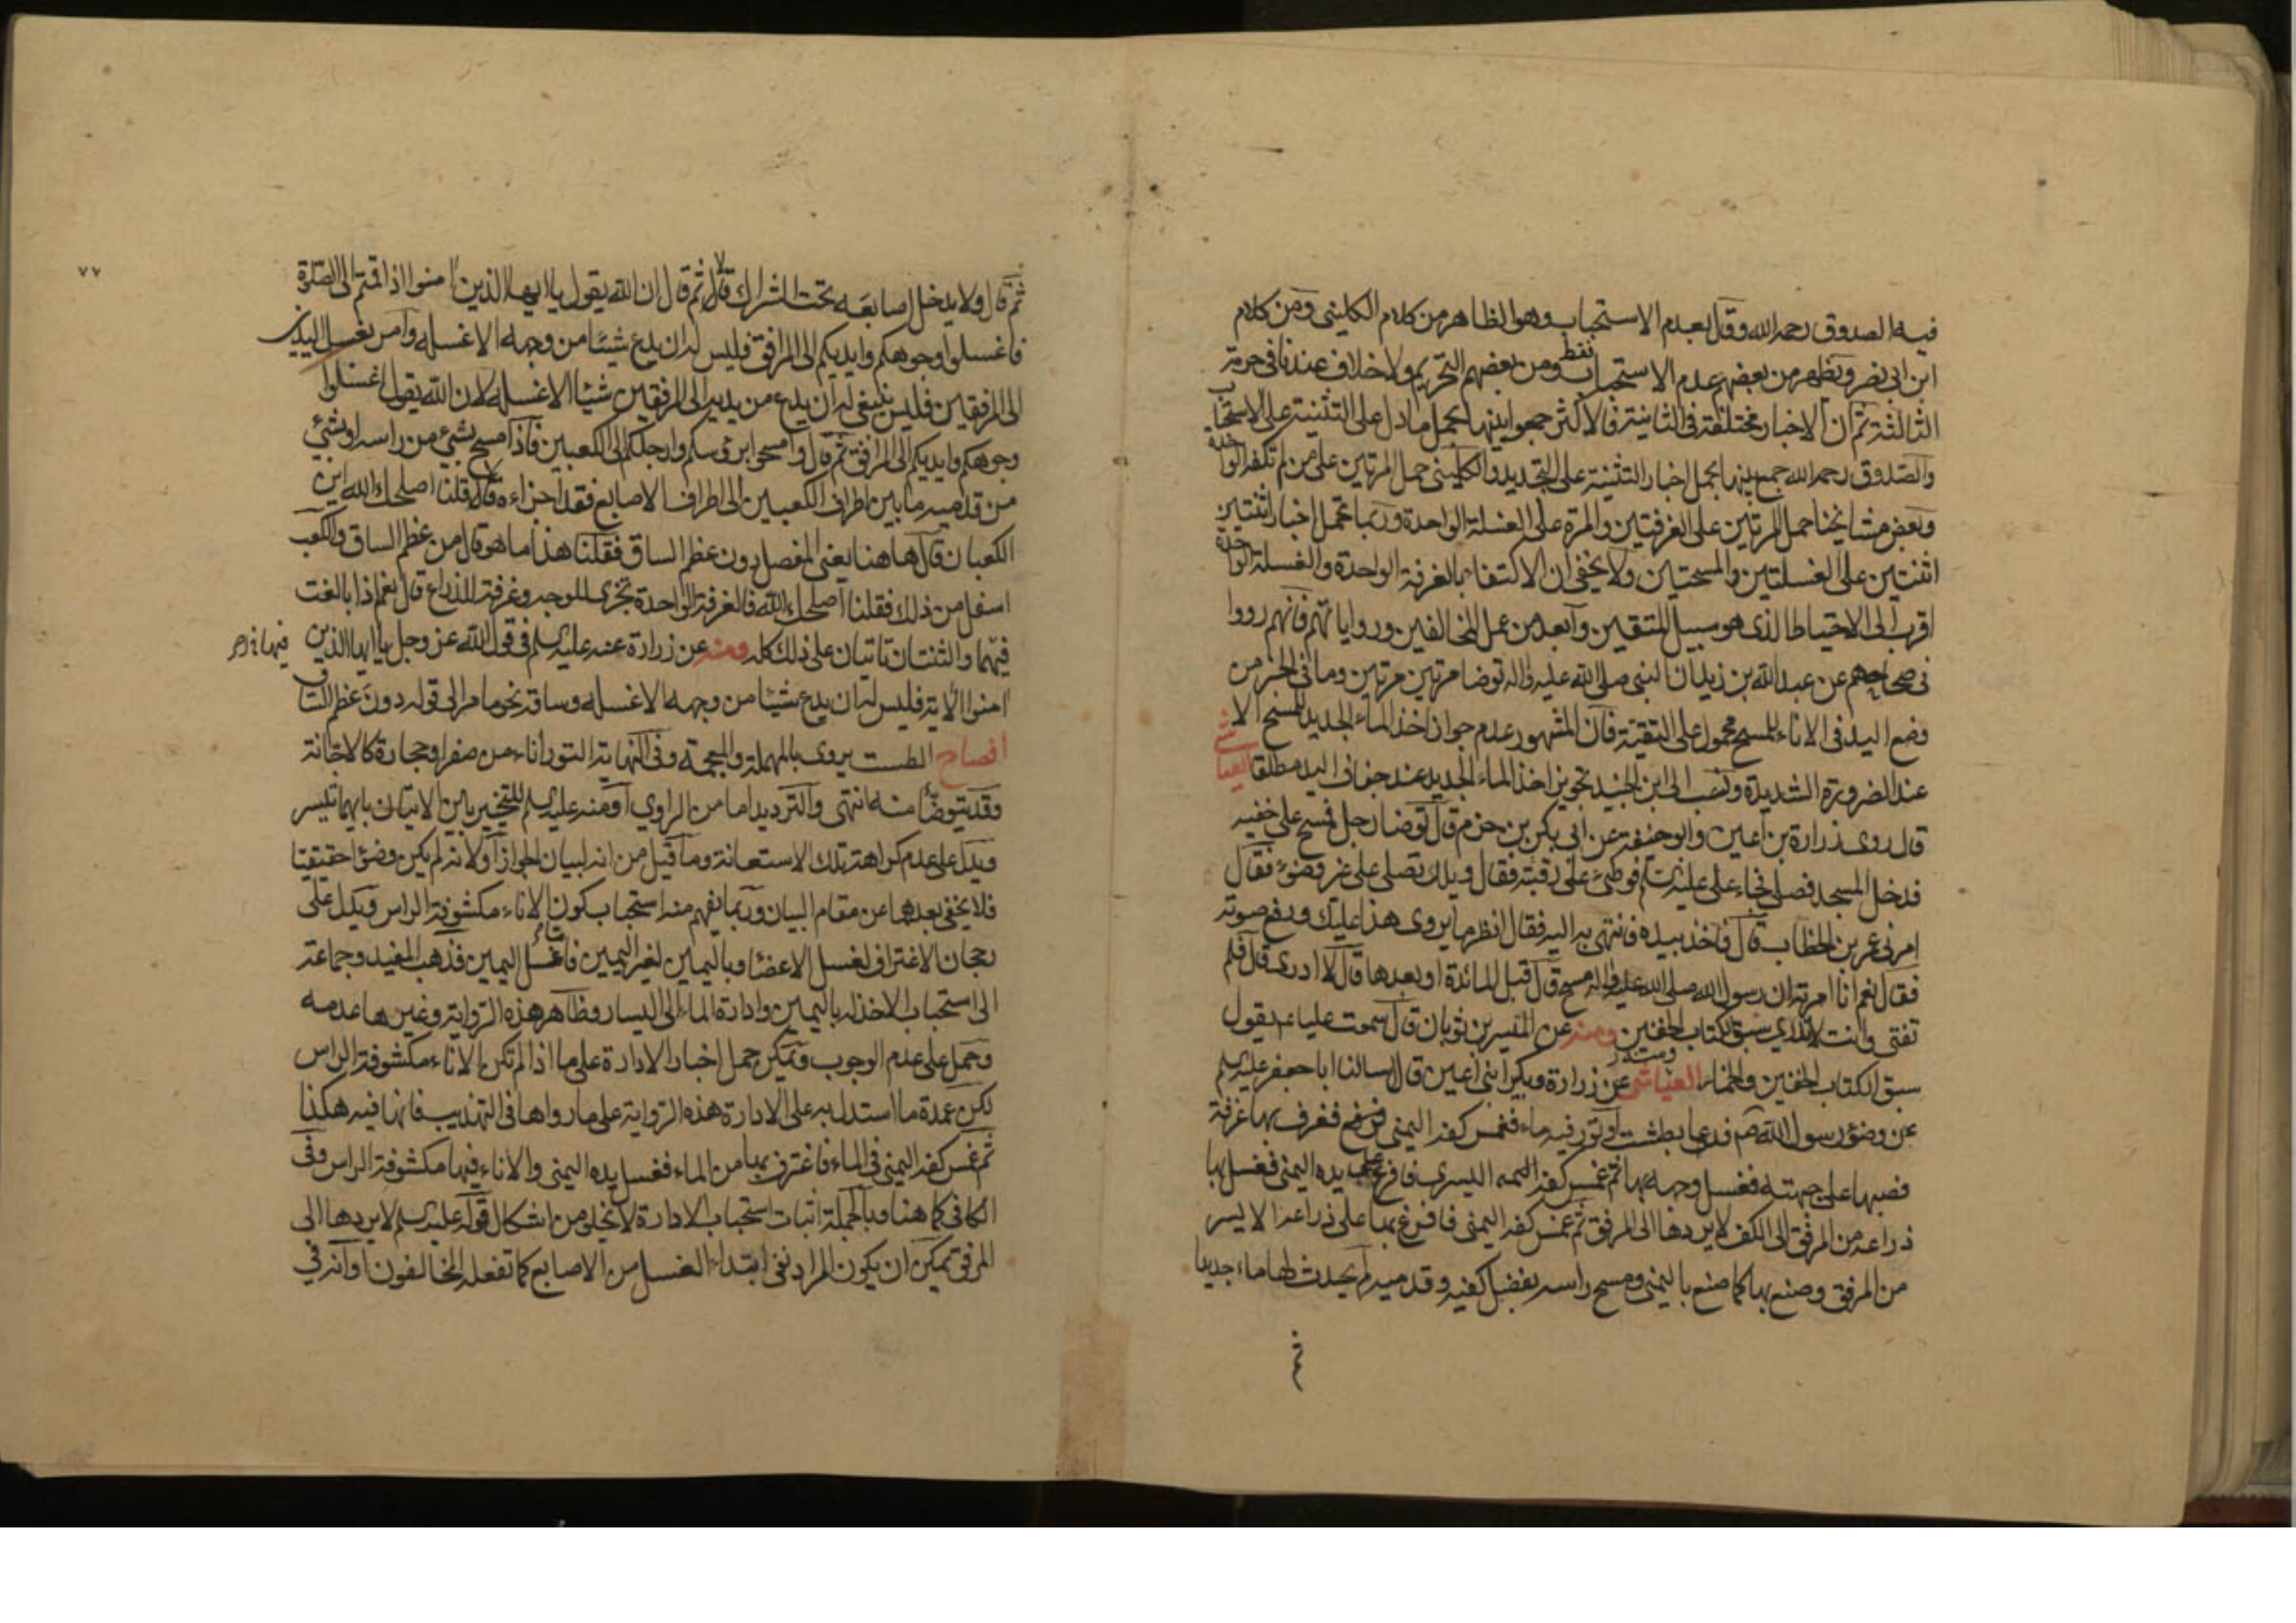 فيه الصدوق رحمه الله وقال بعدم الاستحباب وهو الظاهر من كلام الكليني ومن كلام
ابن ابي نصر ويظهر من بعضهم عدم الاستحباب فقط ومن بعضهم التحريم ولا خلاف عندنا في حرمة
الثالثة ثم ان الاخبار مختلفة في الثانية فالاكثر جمعوا بينها بحمل ما دل على التثنية على الاستحباب
والصدوق رحمه الله جمع بينها بحمل اخبار التثنية على التجديد والكليني حمل المرتين على من لم تكفه الواحدة
وبعض مشايخنا حمل المرتين على الغرفتين والمرة على الغسلة الواحدة وربما تحمل اخبار اثنتين
اثنتين على الغسلتين والمسحتين ولا يخفى ان الاكتفاء بالغرفة الواحدة والغسلة الواحدة
اقرب الى الاحتياط الذي هو سبيل المتقين وابعد من عمل المخالفين ورواياتهم فانهم رووا
في صحاحهم عن عبد الله بن زيد ان النبي صلى الله عليه واله توضا مرتين مرتين وما في الخبر من
وضع اليد في الاناء للمسح محمول على التقية فان المشهور عدم جواز اخذ الماء الجديد للمسح الا
عند الضرورة الشديدة ونسب الى ابن الجنيد تجويز اخذ الماء الجديد عند جفاف اليد مطلقا العياشي
قال روى زرارة بن اعين وابو حنيفة عن ابي بكر بن حزم قال توضا رجل فمسح على خفيه
فدخل المسجد فصلى فجاء علي عليه السلام فوطئ على رقبته فقال ويلك تصلي على غير وضوء فقال
امرني عمر بن الخطاب قال فاخذ بيده فانتهى به اليه فقال انظر ما يروي هذا عليك ورفع صوته
فقال نعم انا امرته ان رسول الله صلى الله عليه واله مسح قال قبل المائدة او بعدها قال لا ادري قال فلم
تفتي وانت لا تدري سبق الكتاب الخفين ومنه عن الميسر بن ثوبان قال سمعت عليا ع يقول
سبق الكتاب الخفين والخمار العياشي ومنه عن زرارة وبكير ابني اعين قال سالنا ابا جعفر عليه السلم
عن وضوء رسول الله ص فدعا بطشت او تور فيه ماء فغمس كفه اليمنى فغرف بها غرفة
فصبها على جبهته فغسل وجهه بها ثم غمس كفه اليسرى فافرغ على يده اليمنى فغسل بها
ذراعه من المرفق الى الكف لا يردها الى المرفق ثم غمس كفه اليمنى فافرغ بها على ذراعه الايسر
من المرفق وصنع بها كما صنع باليمنى ومسح راسه بفضل كفيه وقدميه لم يحدث لها ماء جديدا
٧٧
ثم قال ولا يدخل اصابعه تحت الشراك قالا ثم قال ان الله يقول يا ايها الذين امنوا اذا قمتم الى الصلوة
فاغسلوا وجوهكم وايديكم الى المرافق فليس له ان يدع شيئا من وجهه الا غسله وامر بغسل اليدين
الى المرفقين فليس ينبغي له ان يدع من يديه الى المرفقين شيئا الا غسله لان الله يقول اغسلوا
وجوهكم وايديكم الى المرافق ثم قال وامسحوا برؤسكم وارجلكم الى الكعبين فاذا مسح بشيء من راسه او بشيء
من قدميه ما بين اطراف الكعبين الى اطراف الاصابع فقد اجزاءه قالا قلنا اصلحك الله اين
الكعبان قال هاهنا يعني المفصل دون عظم الساق فقلنا هذا ما هو قال من عظم الساق والكعب
اسفل من ذلك فقلنا اصلحك الله فالغرفة الواحدة تجزي للوجه وغرفة للذراع قال نعم اذا بالغت
فيهما والثنتان تاتيان على ذلك كله ومنه عن زرارة عنه عليه السلم في قول الله عز وجل يا ايها الذين
امنوا الاية فليس له ان يدع شيئا من وجهه الا غسله وساقه نحو ما مر الى قوله دون عظم الساق
افصاح الطست يروى بالمهملة والمعجمة وفي النهاية التور اناء من صفر او حجارة كالاجانة
وقد يتوضأ منه انتهى والترديد اما من الراوي او منه عليه السلم للتخيير بين الاتيان بايهما تيسر
ويدل على عدم كراهة تلك الاستعانة وما قيل من انه لبيان الجواز او لانه لم يكن وضوء احقيقيا
فلا يخفى بعدهما عن مقام البيان وربما يفهم منه استحباب كون الاناء مكشوفة الراس ويدل على
رجحان الاغتراف لغسل الاعضاء وباليمين لغير اليمين فاما غسل اليمين فذهب المفيد وجماعة
الى استحباب الاخذ له باليمين وادارة الماء الى اليسار وظاهر هذه الرواية وغيرها عدمه
وحمل على عدم الوجوب ويمكن حمل اخبار الادارة على ما اذا لم تكن الاناء مكشوفة الراس
لكن عمدة ما استدل به على الادارة هذه الرواية على ما رواها في التهذيب فانها فيه هكذا
ثم غمس كفه اليمنى في الماء فاغترف بها من الماء فغسل يده اليمنى والاناء فيها مكشوفة الراس وفي
الكافي كما هنا وبالجملة اثبات استحباب الادارة لا يخلو من اشكال قوله عليه السلم لا يردها الى
المرفق يمكن ان يكون المراد نفي ابتداء الغسل من الاصابع كما تفعله المخالفون او انه في